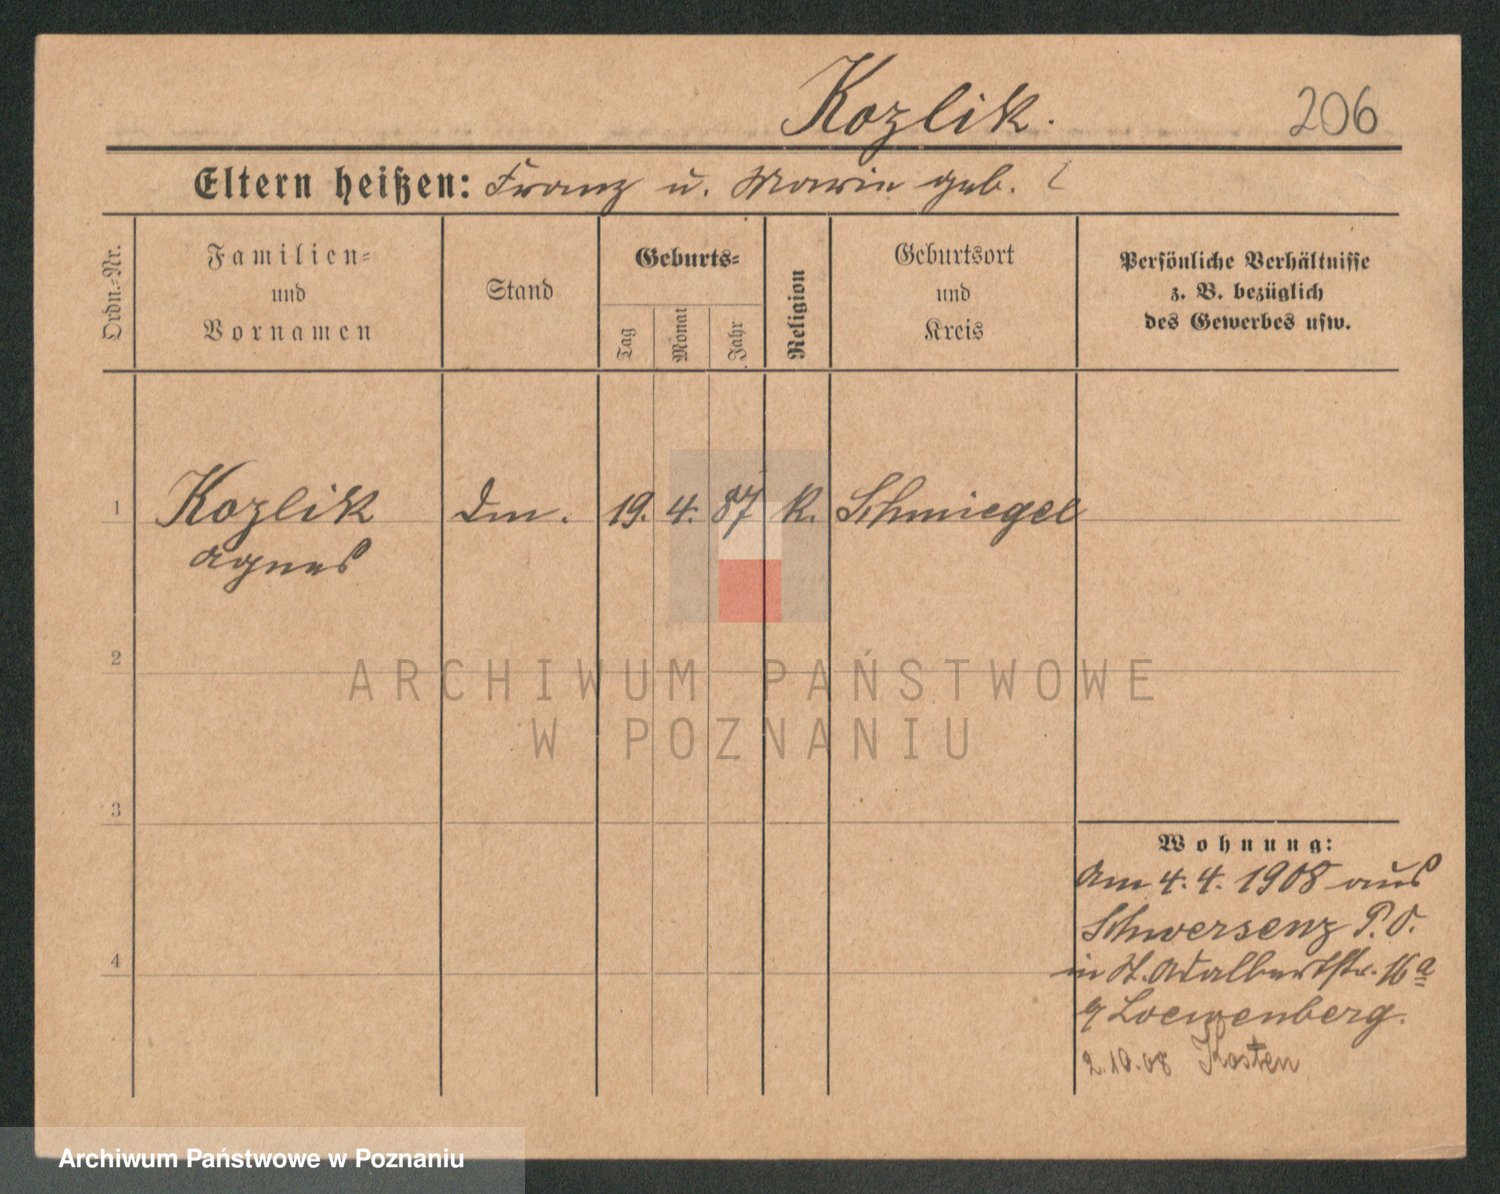 Kozlik.
206
Eltern heißen: Franz u. Marie geb. ?
Ordn.-Nr.
Familien-
und
Vornamen
Stand
Geburts-
Tag
Monat
Jahr
Religion
Geburtsort
und
Kreis
Persönliche Verhältnisse
z. B. bezüglich
des Gewerbes usw.
1 Kozlik Dm. 19. 4. 87 k. Schmiegel
Agnes
2
3
4
Wohnung:
Am 4.4.1908 aus
Schwersenz P.O.
in St. Adalbertstr. 16a
Loewenberg.
2.10.08 Kosten
ARCHIWUM PAŃSTWOWE
W POZNANIU
Archiwum Państwowe w Poznaniu